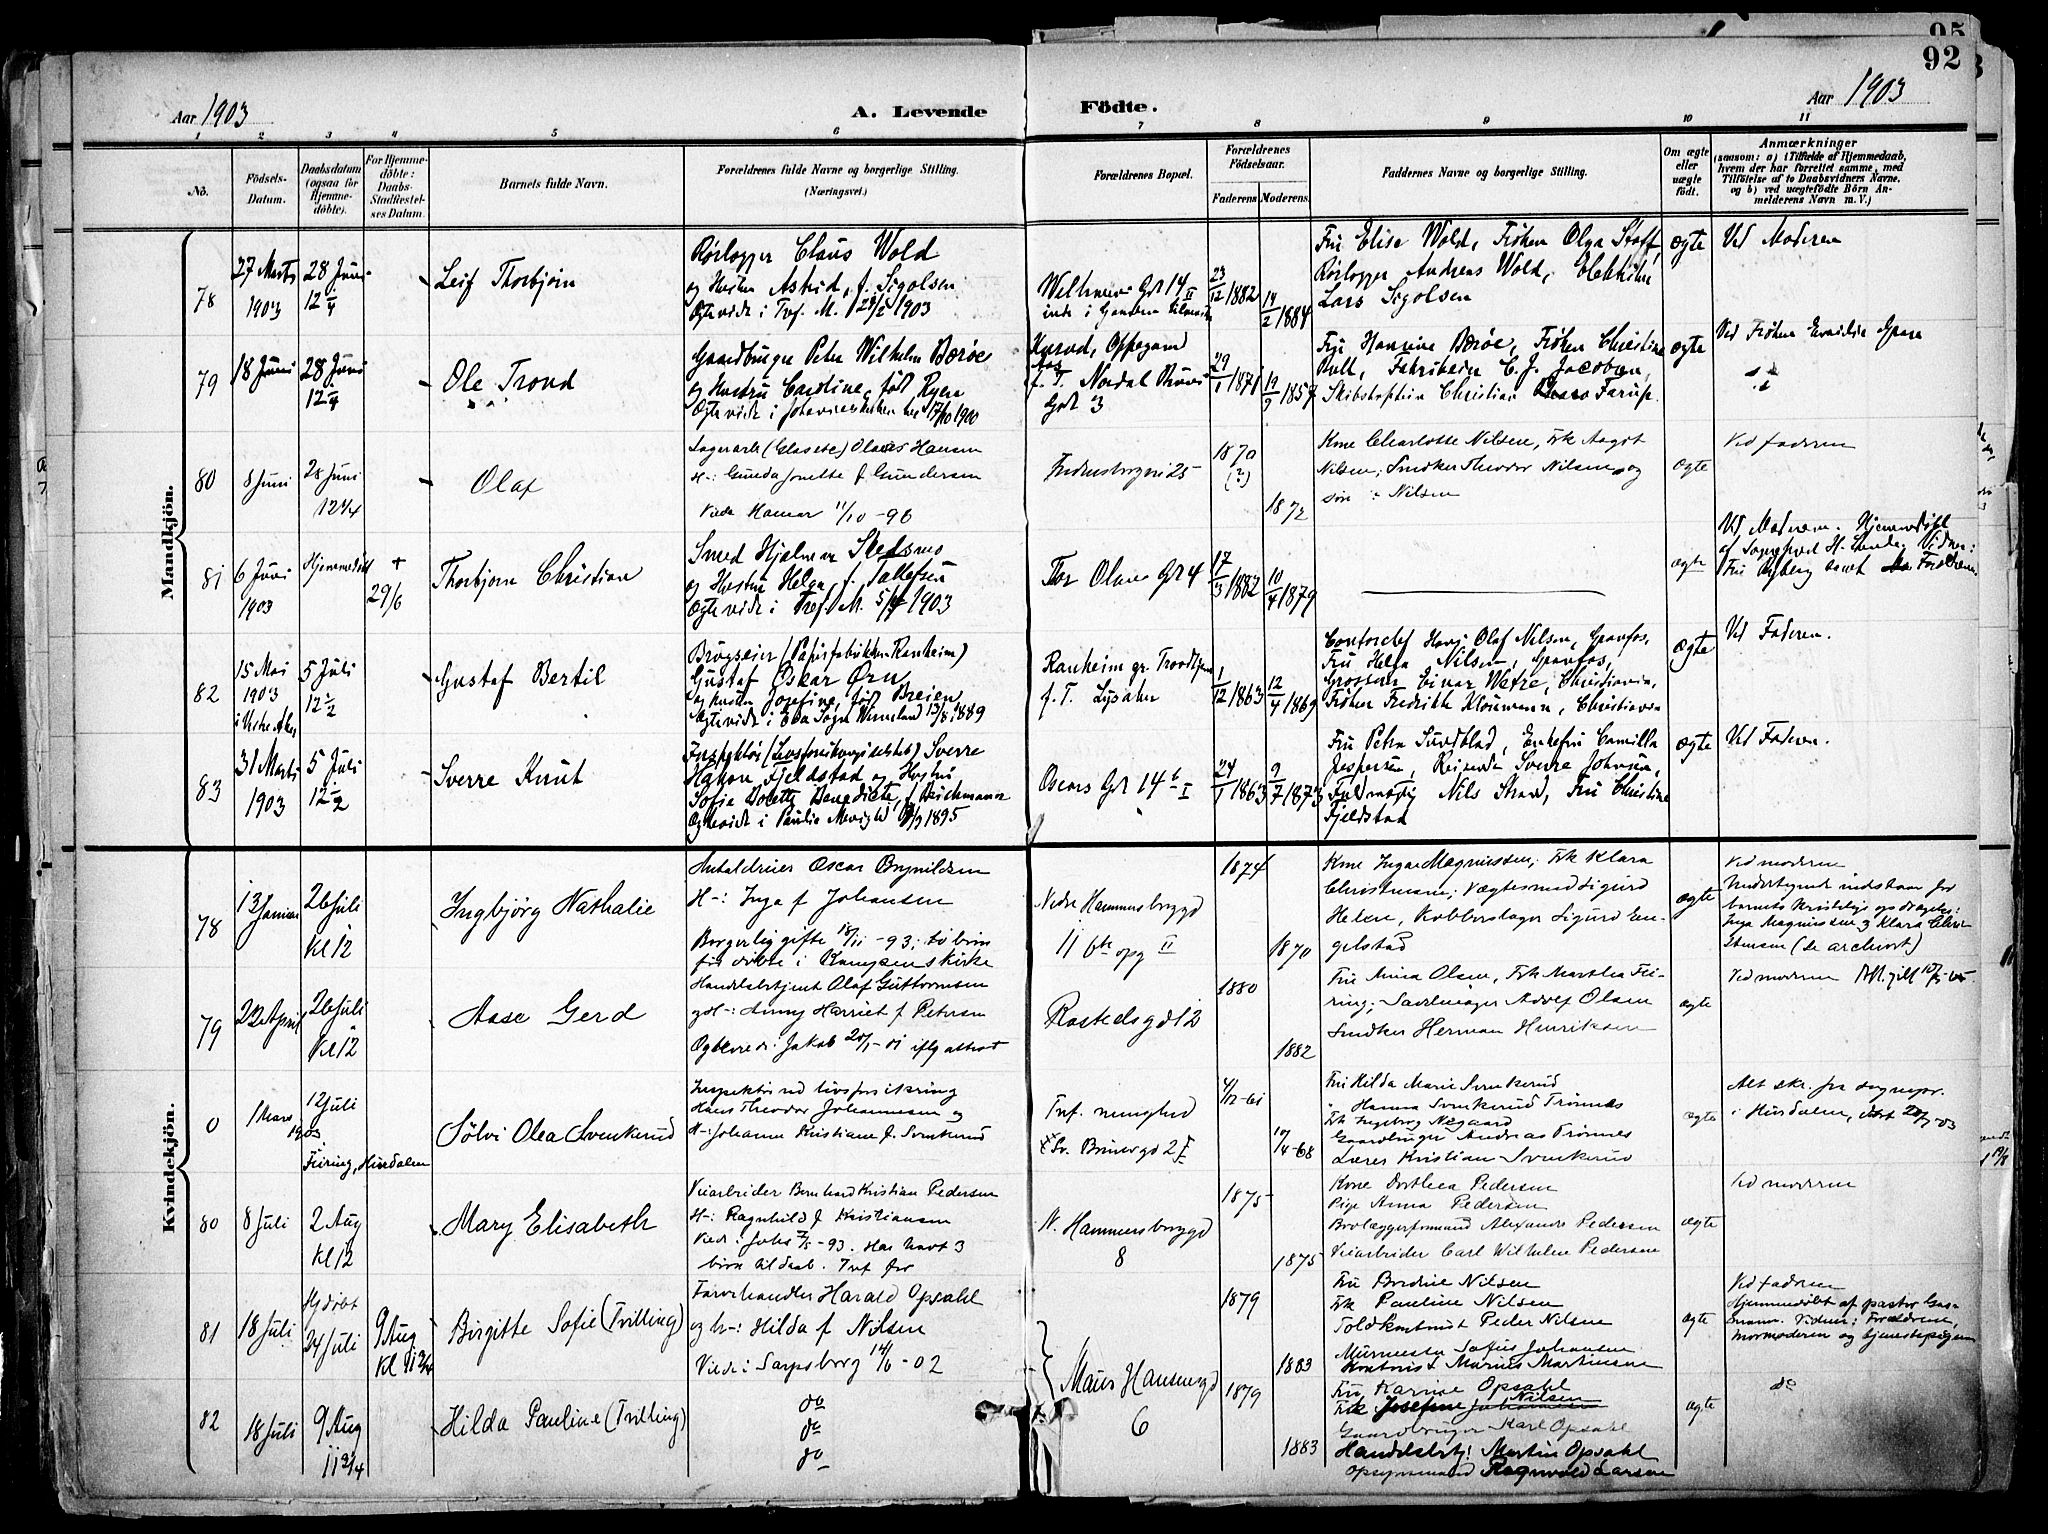 95
92
Aar 1903
A. Levende
Födte.
Aar 1903
1 2 3 4 5 6 7 8 9 10 11
No.
Födsels-
Datum.
Daabsdatum
(ogsaa for
Hjemme-
döbte).
For Hjemme-
döbte:
Daabs-
Stadfæstel-
ses Datum.
Barnets fulde Navn.
Forældrenes fulde Navne og borgerlige Stilling.
(Næringsvei.)
Forældrenes Bopæl.
Forældrenes
Födselsaar.
Faderens Moderens
Faddernes Navne og borgerlige Stilling.
Om ægte
eller
uægte
födt.
Anmærkninger
(saasom: a) i Tilfælde af Hjemmedaab,
hvem der har forrettet samme, med
Tilföielse af to Daabsvidners Navne,
og b) ved uægtefödte Börn An-
melderens Navn m. V.)
Mandkjön.
78
27 Marts
1903
28 Juni
12 1/4
Leif Thorbjørn
Rørlægger Claus Wold
og Hustru Astrid, f. Sigolsen
Ægteviede i Trf. M. 28/2 1903
14 II
23/12 1882
14/2 1884
Fru Elise Wold, Frøken Olga
Rørlægger Andreas Wold,
Lars Sigolsen
ægte
Ved Moderen
79
18 Juni
28 Juni
12 1/4
Ole Trond
Gaardbruger Peter Wilhelm Bærøe
og Hustru Caroline, født Rygen
Ægteviede i 17/10 1900
Oppegaard
f. T. Nordal Bruns
Gd 3
29/1 1871
19/9 1857
Fru Hansine Bærøe, Frøken Christine
Bull, C. J. Jacobsen,
Skibskaptein Christian Farup.
ægte
Ved Frøken
80
8 Juni
28 Juni
12 1/4
Olaf
Olaves Hansen
H-: Gunda Jonette f. Gundersen
Viede Hamar 11/10 - 96
25
1870
(?)
1872
Kone Charlotte Nilsen, Frk Aagot
Nilsen; Snedker Theodor Nilsen og
søn Nilsen
ægte
Ved faderen
81
6 Juni
1903
Hjemmedøbt
+
29/6
Thorbjørn Christian
Smed Hjalmar Stedsmo
og Hustru Helga, f. Tallefsen
Ægteviede i Tref. M. 5/4 1903
Thor Olsens Gd 4
17/3 1882
10/4 1879
ægte
Ved Moderen. Hjemmedøbt
af Sogneprest H. Vidner:
Fru Nyberg samt Forældrene
82
15 Mai
1903
i Vestre Aker
5 Juli
12 1/2
Gustaf Bertil
Brugseier (Papirfabrikken Ranheim)
Gustaf Oskar Ørn
og hustru Josefine, født Breien
Ægteviede i Eda Sogn Wermland 13/8 1889
Ranheim pr. Trondhjem
f. T. Lysaker
1/12 1863
12/4 1869
Contorchef Olaf Nilsen, Granfos,
Fru Helga Nilsen, Granfos,
Grosserer Einar Wetre, Christiania,
Frøken Fredrikke Klouman, Christiania
ægte
Ved Faderen.
83
31 Marts
1903
5 Juli
12 1/2
Sverre Knut
Inspektør (Livsforsikringsselskab) Sverre
Hakon Fjeldstad og Hustru
Sofie Bolette Benedicte, f. Deichmann
Ægteviede i 1895
Oscars Gd 14 b I
24/1 1863
9/7 1873
Fru Petra Sundblad, Enkefru Camilla
Jespersen, Reisende Sverre Johnsen,
Fuldmægtig Nils Strand, Fru Christine
Fjeldstad
ægte
Ved Faderen.
Kvindekjön.
78
13 Januar
26 Juli
Kl 12
Ingbjörg Nathalie
Oscar Brynildsen
H-: Inga f Johansen
Borgerlig gifte 18/11 - 93; to børn
før døbte i Kampens kirke
Nedre Hammersborggd
11 bk opg II
1874
1870
Kone Inga Magnussen; Frk Klara
Christensen; Vægtermed Sigurd
Helene, Kobberslager Sigurd En-
gelstad
ægte
Ved moderen
Undertegnede indstaar for
barnets kristelige opdragelse:
Inga Magnussen & Klara Chri-
stensen (se archivet)
79
22 April
26 Juli
Kl 12
Aase Gerd
Handelsbetjent Olaf Guttormsen
og H-: Anny Harriet f Petersen
Ægteviede: Jakob 20/1 - 01 iflg attest
Rostedsgd 12
1880
1882
Fru Anna Olsen, Frk Marthea Fei-
ring; Sadelmager Adolf Olsen
Snedker Herman Henriksen
ægte
Ved moderen
0
1 Mars
1903
12 Juli
Feiring, Hurdalen
Sölvi Olea Svenkerud
Inspektör ved livsforsikring
Hans Theodor Johannesen og
H-: Johanne Kristiane f. Svenkerud
Trf. menighed
Br. Brunsgd 2 I
4/12 - 61
10/4 - 68
Fru Hilda Marie Svenkerud
Hanna Svenkerud Trønnes
Frk Ingeborg Negaard
Gaardbruger Andreas Trønnes
Lærer Kristian Svenkerud
ægte
Alt skr. fra sognepr.
i Hurdalen, dat 20/7 - 03
80
8 Juli
2 Aug
Kl 12
Mary Elisabeth
Veiarbeider Bernhard Kristian Pedersen
H-: Ragnhild f Kristiansen
Viede: Johs - 93. Har havt 3
børn til daab. Trf før
N. Hammersborggd
8
1875
1875
Kone Dorthea Pedersen
Pige Anna Pedersen
Brolæggerformand Alexander Pedersen
Veiarbeider Carl Wilhelm Pedersen
ægte
Ved moderen
81
18 Juli
Hj døbt
24 Juli
9 Aug
Kl 11 3/4
Birgitte Sofie (Tvilling)
Farvehandler Harald Opsahl
og h-: Hilda f Nilsen
Viede: Sarpsborg 14/6 - 02
Maus Hansengd
6
1879
1883
Fru Bredine Nilsen
Frk Pauline Nilsen
Toldkontrolör Peder Nilsen
Murmester Sofus Johansen
Kontorist Marius Martinsen
ægte
Ved faderen
Hjemmedøbt af pastor Gas-
mann. Vidner: Forældrene,
mormoderen og tjenestepigen
82
18 Juli
9 Aug
11 3/4
Hilda Pauline (Tvilling)
do
do
do
1879
1883
Fru Karine Opsahl
Frk Josefine Nilsen
Gaardbruger Karl Opsahl
Handelsbetj: Martin Opsahl
Opsynsmand Ragnvald Larsen
ægte
do